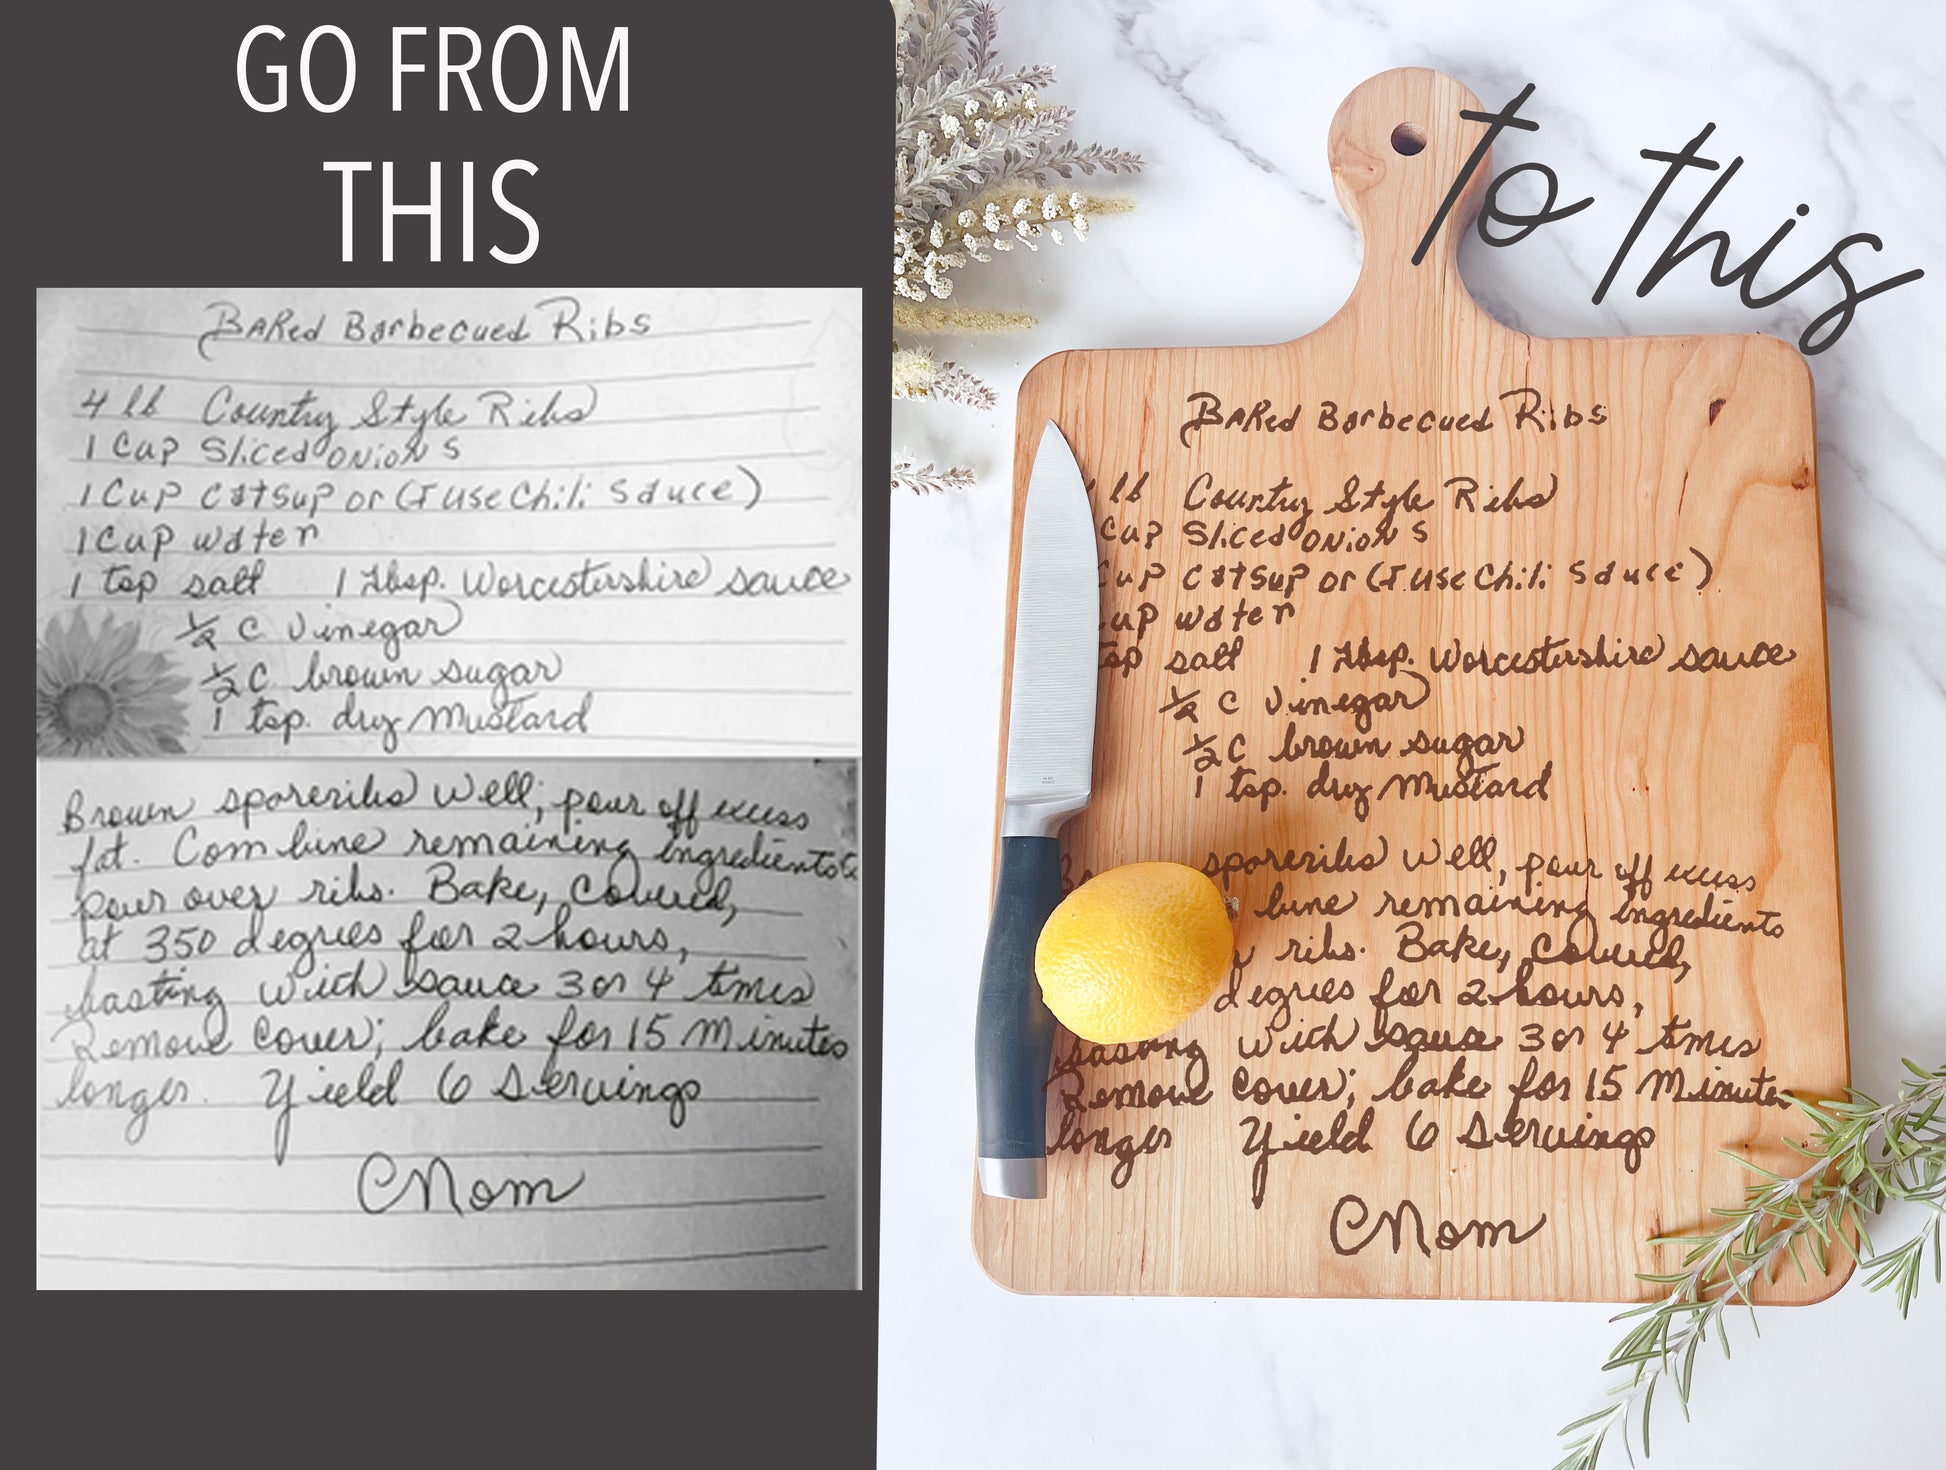 GO FROM
THIS
BAked Barbecued Ribs
4 lb Country Style Ribs
1 Cup Sliced Onions
1 Cup catsup or (I use Chili Sauce)
1 Cup water
1 tsp salt 1 Tbsp. Worcestershire sauce
½ C Vinegar
½ C brown sugar
1 tsp. dry Mustard
Brown spareribs well; pour off excess
fat. Combine remaining ingredients &
pour over ribs. Bake, Covered,
at 350 degrees for 2 hours,
basting with sauce 3 or 4 times
Remove cover; bake for 15 Minutes
longer. Yield 6 Servings
Mom
to this
BAked Barbecued Ribs
lb Country Style Ribs
Cup Sliced Onions
Cup catsup or (I use Chili Sauce)
up water
tsp salt 1 Tbsp. Worcestershire sauce
½ C Vinegar
½ C brown sugar
1 tsp. dry Mustard
spareribs well, pour off excess
bine remaining ingredients
ribs. Bake, Covered,
degrees for 2 hours,
basting with sauce 3 or 4 times
Remove cover; bake for 15 Minutes
longer Yield 6 Servings
Mom